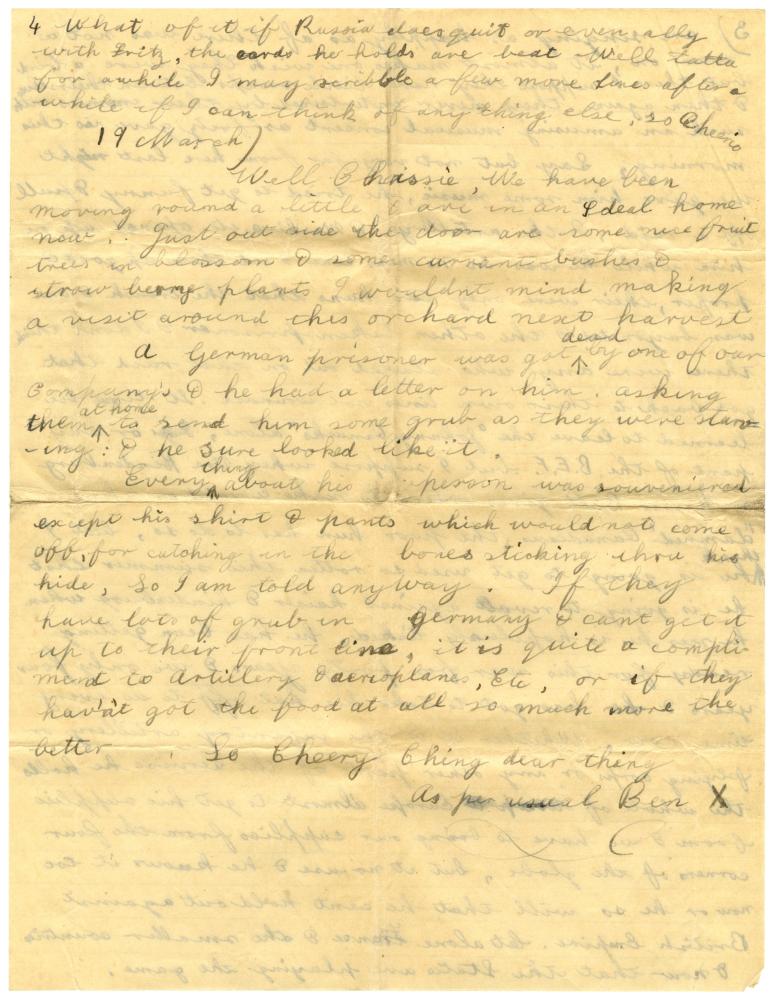 4 What of it if Russia does quit or even ally
with Fritz, the cards he holds are beat Well tatta
for awhile I may scribble a few more lines after a
while if I can think of any thing else, so Cheerio
19 March)
Well Chassie, We have been
moving round a little & are in an Ideal home
now. Just out side the door are some nice fruit
trees in blossom & some currant bushes &
straw berry plants I wouldnt mind making
a visit around this orchard next harvest
A German prisoner was got dead by one of our
Company's & he had a letter on him. asking
them at home to send him some grub as they were starv-
-ing: & he sure looked like it.
Every thing about his person was souveniered
except his shirt & pants which would not come
off, for catching in the bones sticking thru his
hide, So I am told anyway. If they
have lots of grub in Germany & cant get it
up to their front line, it is quite a compli-
ment to Artillery & aeroplanes, Etc, or if they
hav'nt got the food at all so much more the
better. So Cheery Ching dear thing
As per usual Ben X